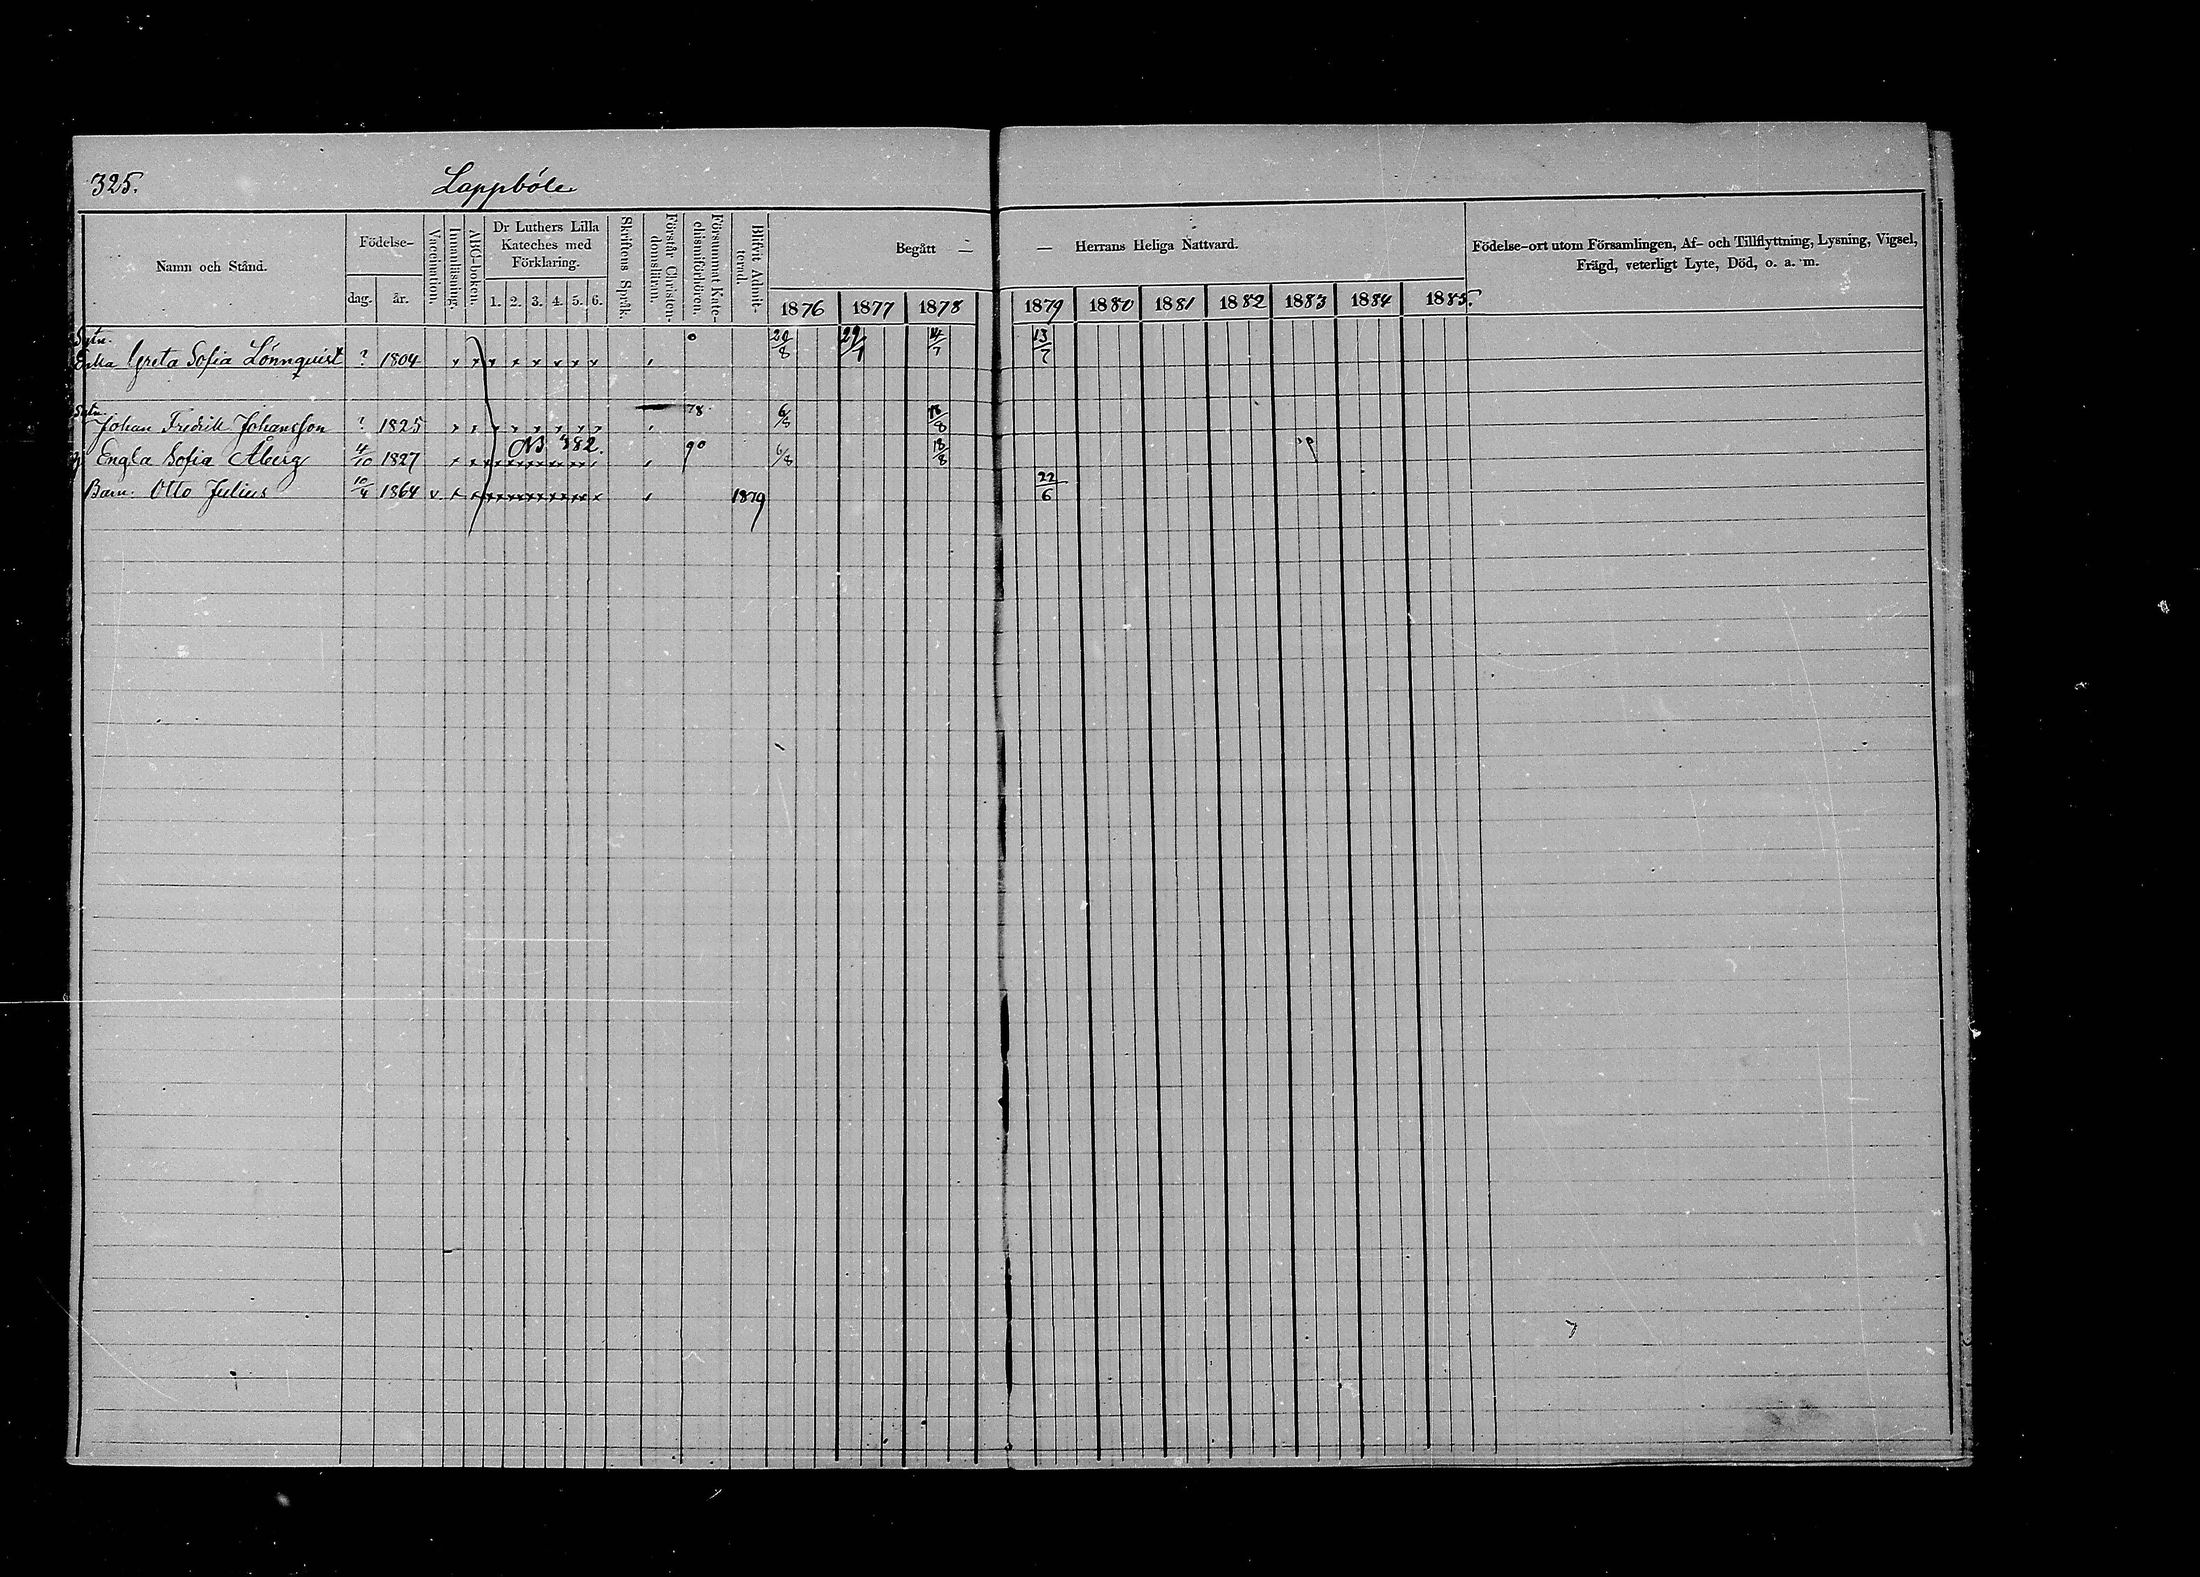 325. Lappböle
Namn och Stånd.
Födelse-
dag. år.
Vaccination.
Innanläsning.
ABC-boken.
Dr Luthers Lilla
Kateches med
Förklaring.
1. 2. 3. 4. 5. 6.
Skriftens Språk.
Förstår Christen-
domsläran.
Försummat Kate-
chismiförhören.
Blifvit Admit-
terad.
Begått —
— Herrans Heliga Nattvard.
1876 1877 1878 1879 1880 1881 1882 1883 1884 1885.
Födelse-ort utom Församlingen, Af- och Tillflyttning, Lysning, Vigsel,
Frägd, veterligt Lyte, Död, o. a. m.
Sytn.
Enka Greta Sofia Lönnquist ? 1804 0 20/8 14/7 13/7
Sytn.
Johan Fredrik Johansson ? 1825 78 6/8 18/8
Engla Sofia Åberg 4/10 1827 N3 382. 90 6/8 18/8
Barn: Otto Julius 10/4 1864 v 1879 22/6